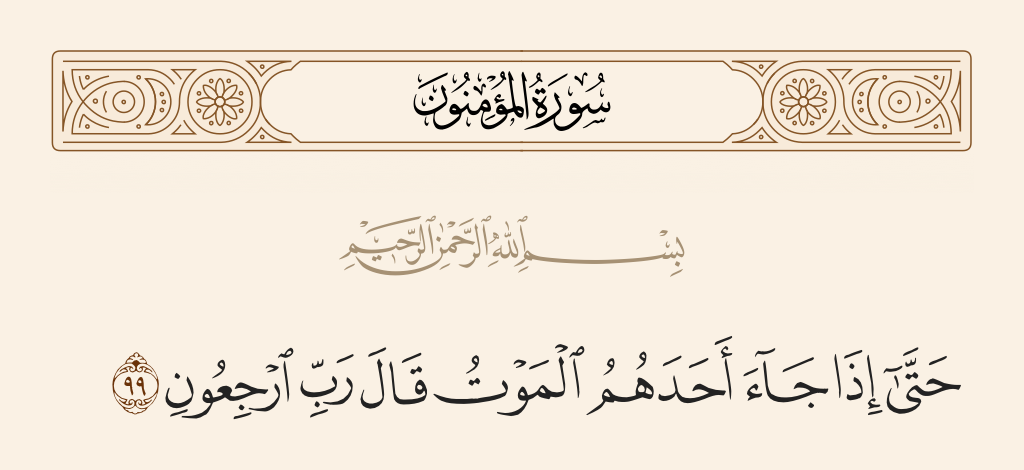 سُورَةُ المُؤْمِنُونَ
بِسْمِ ٱللَّهِ ٱلرَّحْمَٰنِ ٱلرَّحِيمِ
حَتَّىٰٓ إِذَا جَآءَ أَحَدَهُمُ ٱلْمَوْتُ قَالَ رَبِّ ٱرْجِعُونِ ٩٩